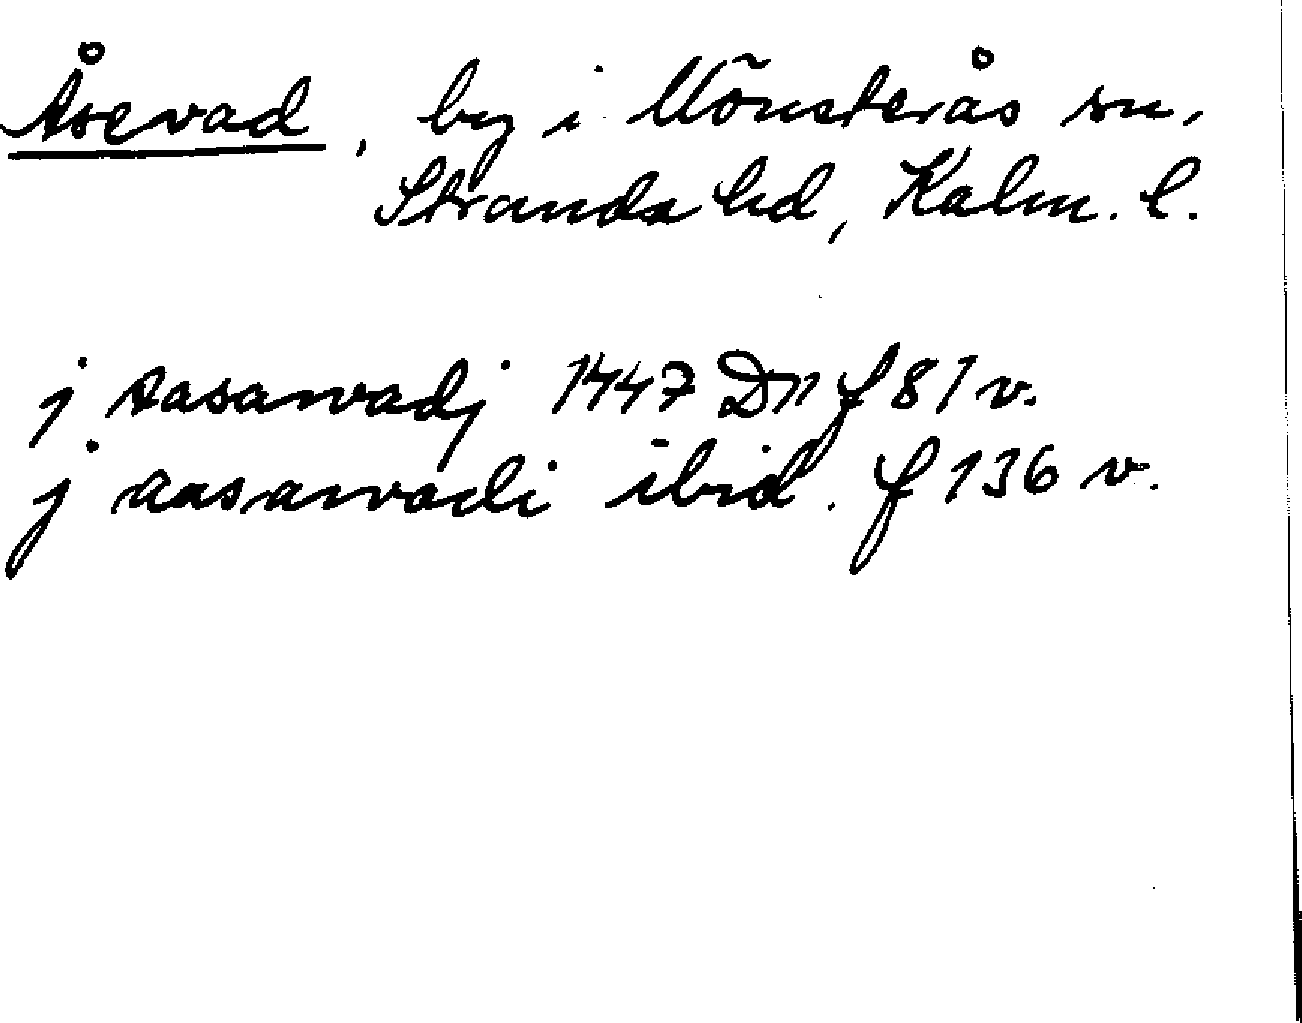 Åsevad, by i Mönsterås sn,
Stranda hd, Kalm. l.
j aasawadj 1447 D11 f 81 v.
j aasawadi ibid. f 136 v.